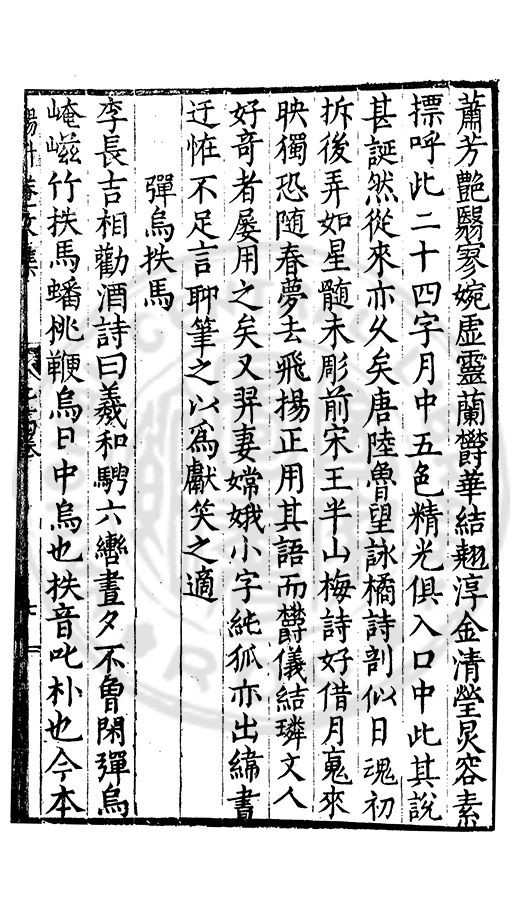 蕭芳艷翳寥婉虛靈蘭欝華結翹淳金清瑩炅容素
摽呼此二十四字月中五色精光俱入口中此其說
甚誕然從來亦乆矣唐陸魯望詠橘詩剖似日魂初
拆後弄如星髓未彫前宋王半山梅詩好借月䰟來
映獨恐随春夢去飛揚正用其語而欝儀結璘文人
好奇者屡用之矣又羿妻嫦娥小字純狐亦出緯書
迂恠不足言聊筆之以爲獻笑之適
彈烏抶馬
李長吉相勸酒詩曰羲和騁六轡晝夕不曾閑彈烏
崦嵫竹抶馬蟠桃鞭烏日中烏也抶音叱朴也今本